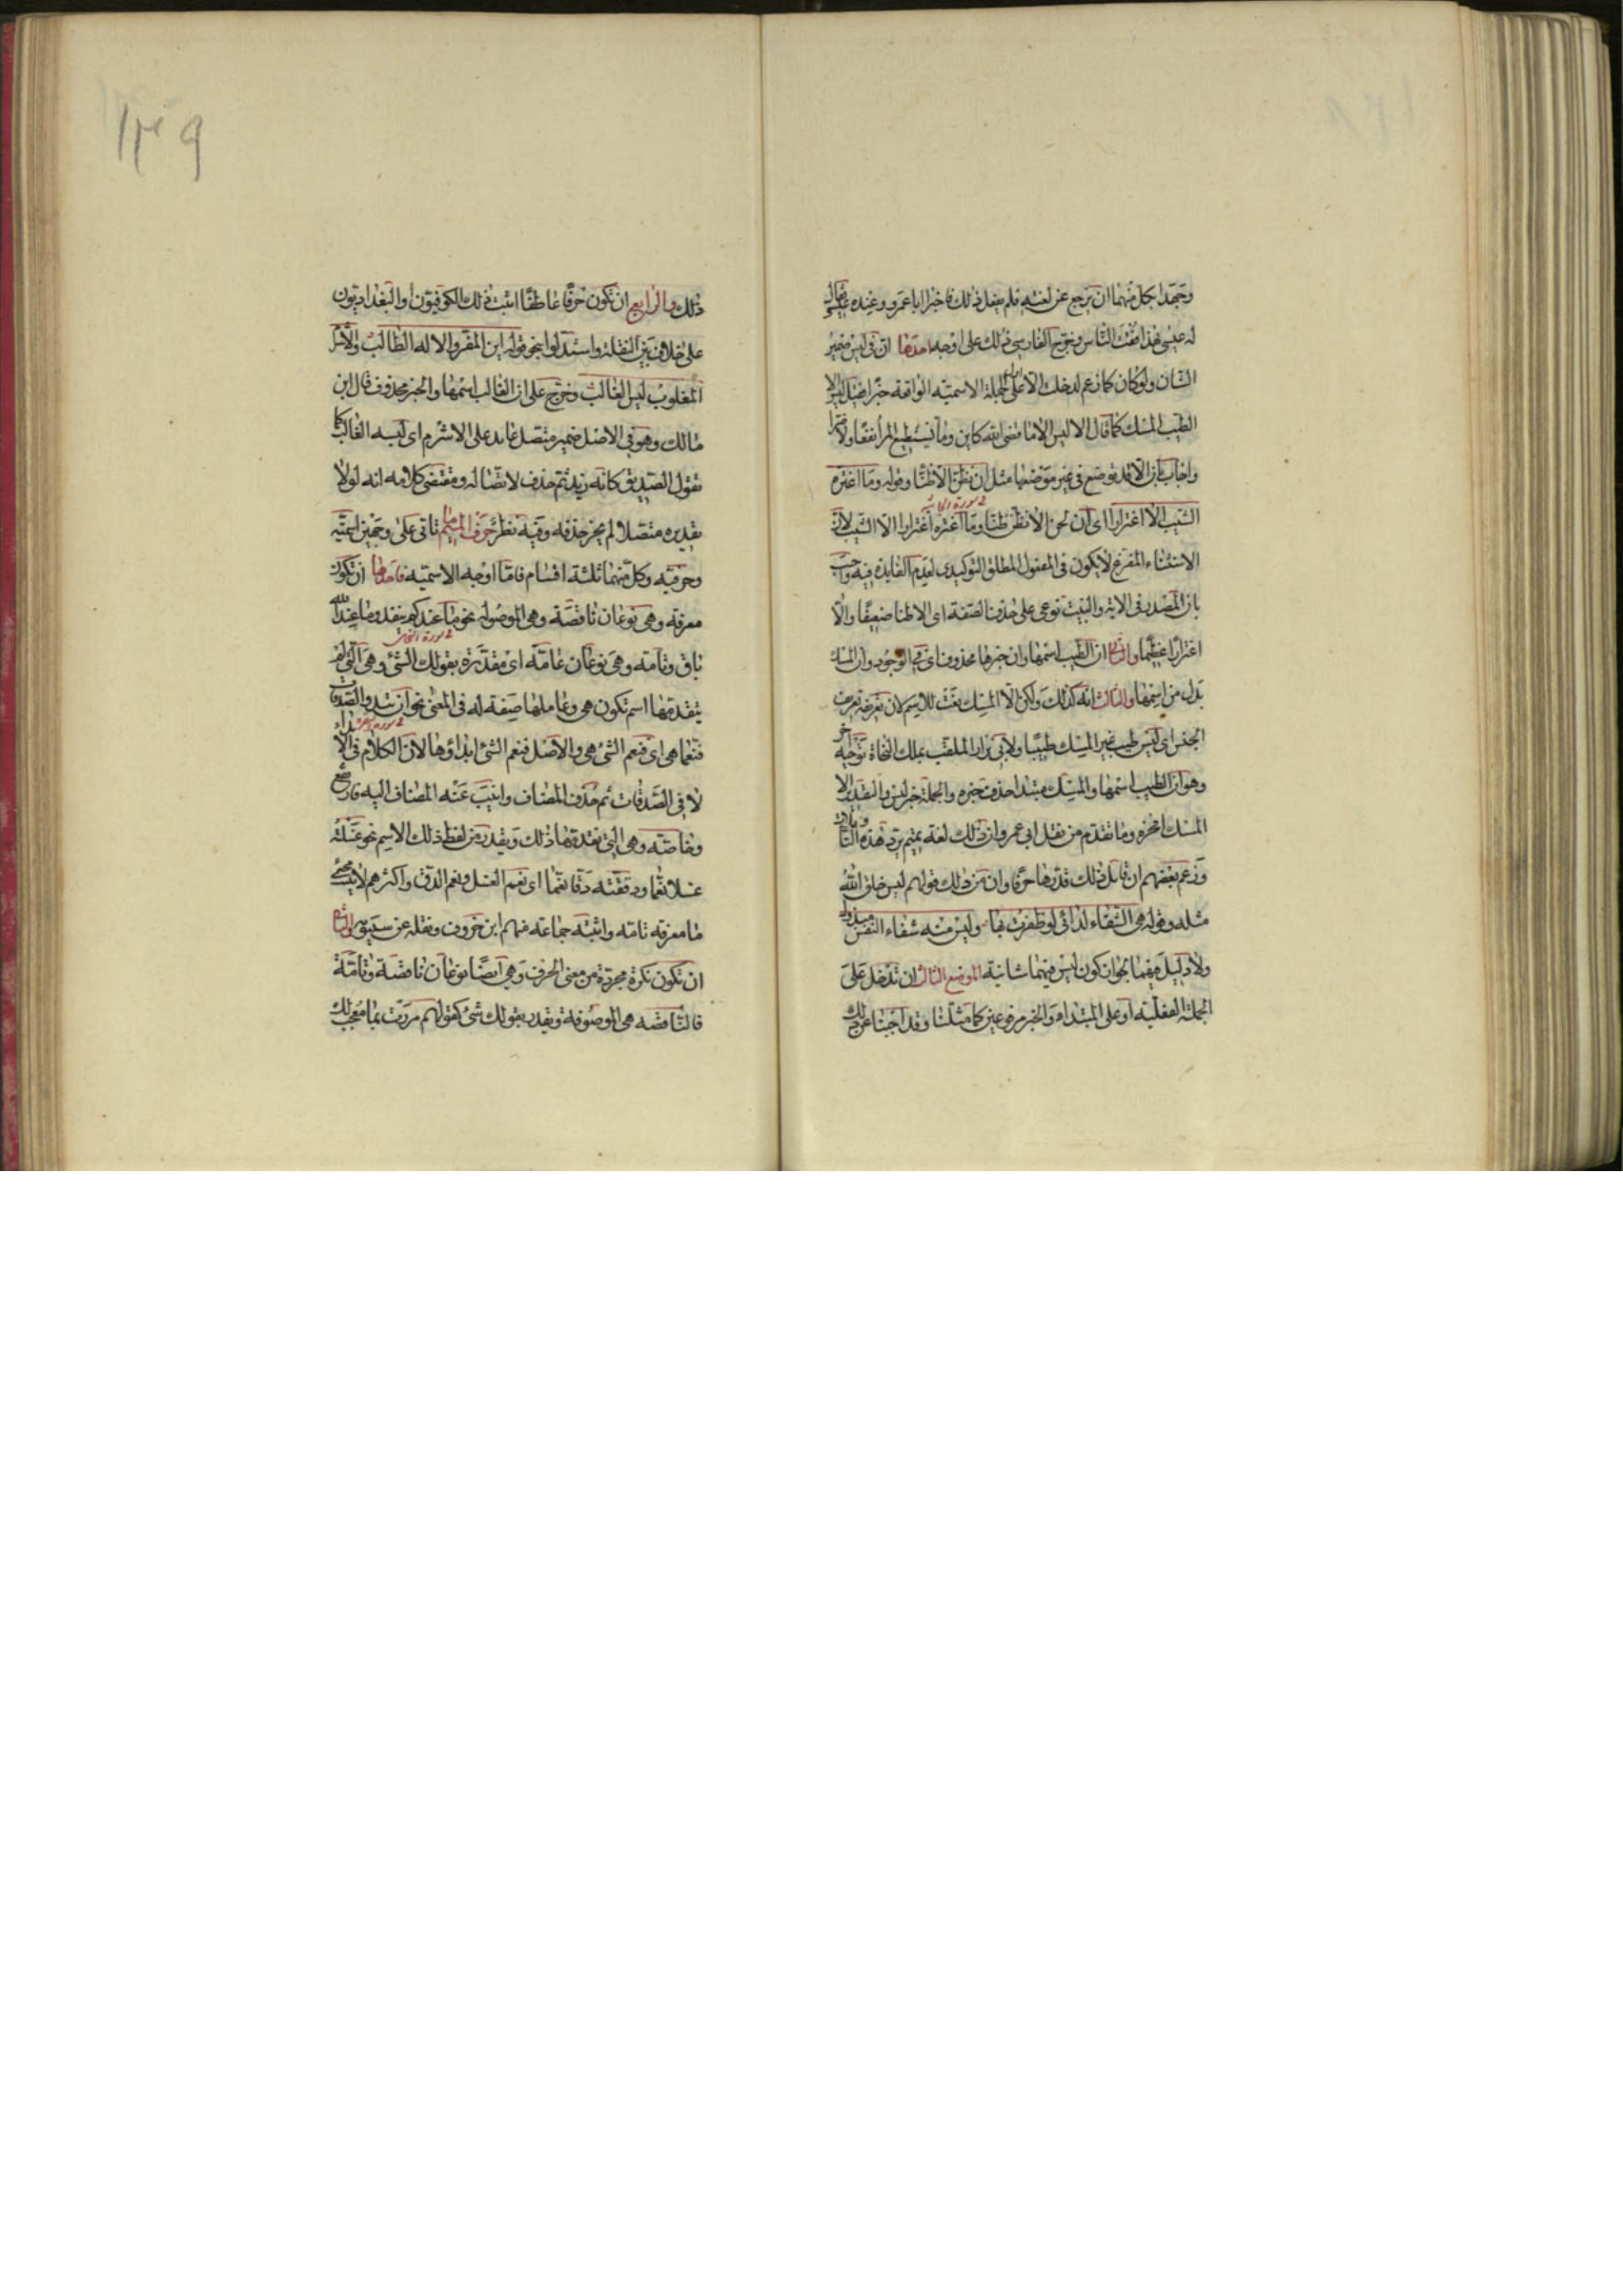 وجهدا بكل منهما ان يرجع عن لغته فلم يفعل ذلك فاخبرا ابا عمرو وعنده عيسى فقال
له عيسى بهذا فقت الناس وخرج الفارسى ذلك على اوجه احدها ان فى ليس ضمير
الشان ولو كان كما زعم لدخلت الا على اول الجملة الاسمية الواقعة خبرا فقيل ليس الا
الطيب المسك كما قال الا ليس الا ما قضى الله كاين وما يستطيع المرأ نفعا ولا ضرا
واجاب بان الا قد توضع فى غير موضعها مثل ان نظن الا ظنا وقوله وما اغتره
الشيب الا اغترارا اى ان نحن الا نظن ظنا وما اغتره اغترارا الا الشيب لان
الاستثناء المفرغ لا يكون فى المفعول المطلق التوكيدى لعدم الفايدة فيه واجيب
بان المصدر فى الاية والبيت نوعى على حذف الصفة اى الا ظنا ضعيفا والا
اغترارا عظيما والثانى ان الطيب اسمها وان خبرها محذوف اى فى الوجود وان المسك
بدل من اسمها والثالث انه كذلك ولكن الا المسك نعت للاسم لان تعريفه تعريف
الجنس اى ليس طيب غير المسك طيبا ولابى نزار الملقب بملك النحاة توجيه آخر
وهو ان الطيب اسمها والمسك مبتدا حذف خبره والجملة خبر ليس والتقدير الا
المسك افخره وما تقدم من نقل ابى عمرو ان ذلك لغة تميم يرد هذه التاويلات
وزعم بعضهم ان قائل ذلك قدرها حرفا وان من ذلك قولهم ليس خلق الله
مثله وقوله هى الشفاء لدائى لو ظفرت بها وليس منها شفاء النفس مبذول
ولا دليل فيهما لجواز كون ليس فيهما شانية الموضع الثالث ان تدخل على
الجملة الفعلية او على المبتداء والخبر مرفوعين كما مثلنا وقد اجبنا عن ذلك
١٣٩
ذلك والرابع ان تكون حرفا عاطفا اثبت ذلك الكوفيون او البغداديون
على خلاف بين النقلة واستدلوا بنحو قوله اين المفر والاله الطالب والاشرم
المغلوب ليس الغالب وخرج على ان الغالب اسمها والخبر محذوف قال ابن
مالك وهو فى الاصل ضمير متصل عايد على الاشرم اى ليسه الغالب كما
تقول الصديق كانه زيد ثم حذف لاتصاله ومقتضى كلامه انه لولا
تقديره متصلا لم يجز حذفه وفيه نظر حرف الميم ما تاتى على وجهين اسمية
وحرفية وكل منهما ثلثة اقسام فاما اوجه الاسمية فاحدها ان تكون
معرفة وهى نوعان ناقصة وهى الموصولة نحو ما عندكم ينفد وما عند الله
باق وتامة وهى نوعان عامة اى مقدرة بقولك الشئ وهى التى لم
يتقدمها اسم تكون هى وعاملها صفة له فى المعنى نحو ان تبدوا الصدقات
فنعما هى اى فنعم الشئ هى والاصل فنعم الشئ ابداؤها لان الكلام فى الابداء
لا فى الصدقات ثم حذف المضاف وانيب عنه المضاف اليه فارتفع
وخاصة وهى التى تقدمها ذلك ويقدر من لفظ ذلك الاسم نحو غسلته
غسلا نعما ودققته دقا نعما اى نعم الغسل ونعم الدق واكثرهم لا يثبت مجئ
ما معرفة تامة واثبته جماعة منهم ابن خروف ونقله عن سيبويه والثانى
ان تكون نكرة مجردة من معنى الحرف وهى ايضا نوعان ناقصة وتامة
فالناقصة هى الموصوفة ويقدر بقولك شئ كقولهم مررت بما معجب لك